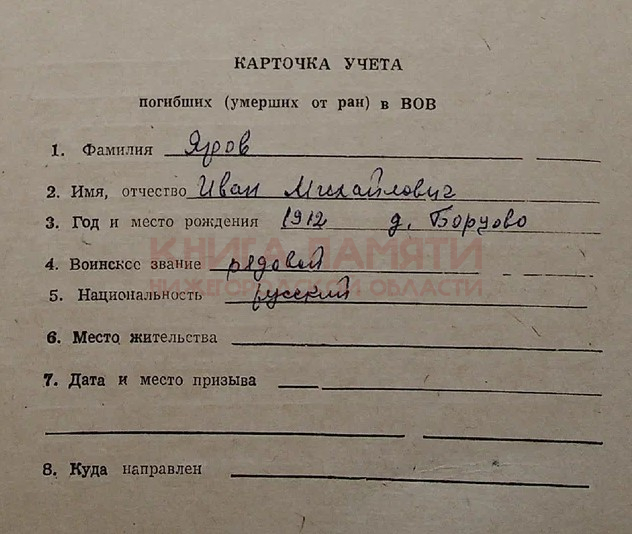 КАРТОЧКА УЧЕТА
погибших (умерших от ран) в ВОВ
1. Фамилия Яров
2. Имя, отчество Иван Михайлович
3. Год и место рождения 1912 д. Борцово
КНИГА ПАМЯТИ
4. Воинское звание рядовой
НИЖЕГОРОДСКОЙ ОБЛАСТИ
5. Национальность русский
6. Место жительства
7. Дата и место призыва
8. Куда направлен